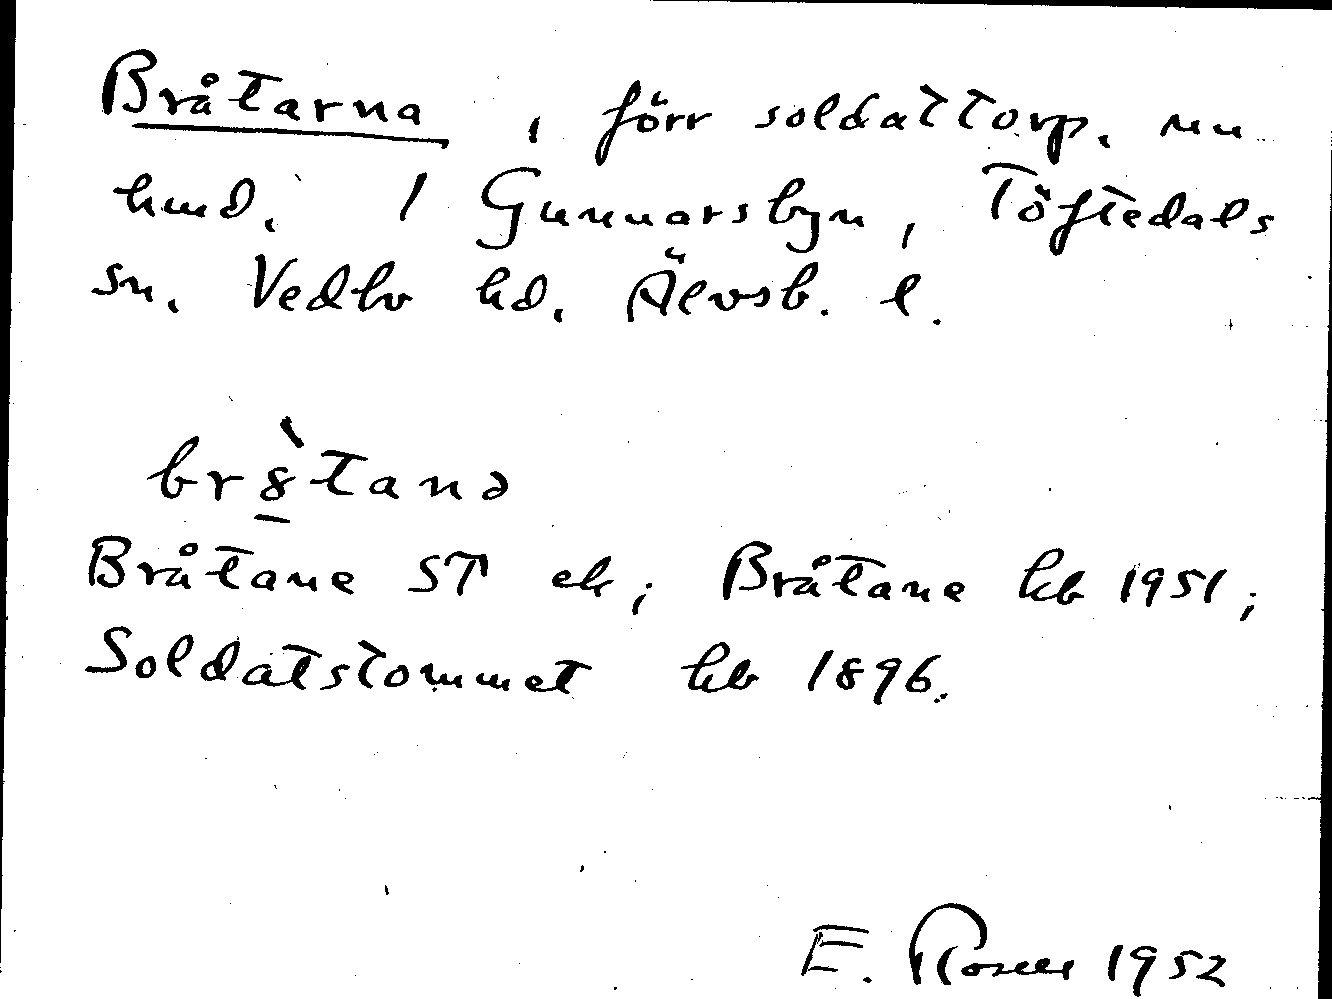 Bråtarna, förr soldattorp, nu
hmd. 1 Gunnarsbyn, Töftedals
sn. Vedbo hd. Älvsb. l.
br8̲̀tanə
Bråtane ST ek; Bråtane kb 1951;
Soldatstommet kb 1896.
E. Rosell 1952